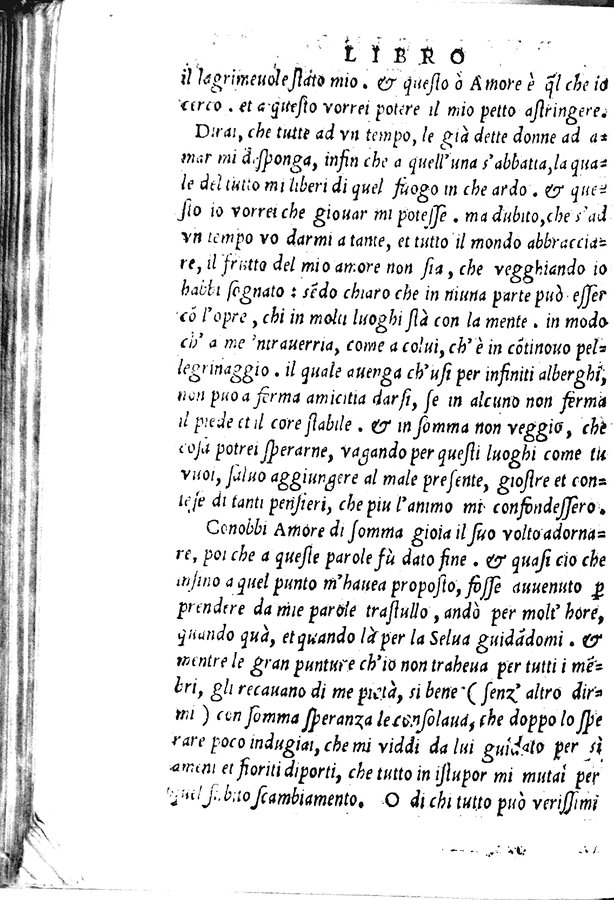 LIBRO
il lagrimeuole stato mio. & questo ò Amore è q̃l che io
cerco. et a questo vorrei potere il mio petto astringere.
Dirai, che tutte ad vn tempo, le già dette donne ad a=
mar mi desponga, infin che a quell'una s'abbatta, la qua=
le del tutto mi liberi di quel fuogo in che ardo. & que=
sto io vorrei che giouar mi potesse. ma dubito, che s'ad
vn tempo vo darmi a tante, et tutto il mondo abbraccia=
re, il frutto del mio amore non sia, che vegghiando io
habbi sognato: sẽdo chiaro che in niuna parte può esser
cõ l'opre, chi in molti luoghi stà con la mente. in modo
ch' a me 'ntrauerria, come a colui, ch'è in cõtinouo pel=
legrinaggio. il quale auenga ch'usi per infiniti alberghi,
non può a ferma amicitia darsi, se in alcuno non ferma
il piede et il core stabile. & in somma non veggio, che
cosa potrei sperarne, vagando per questi luoghi come tu
vuoi, saluo aggiungere al male presente, giostre et con=
tese di tanti pensieri, che piu l'animo mi confondessero.
Conobbi Amore di somma gioia il suo volto adorna=
re, poi che a queste parole fù dato fine. & quasi cio che
insino a quel punto m'hauea proposto, fosse auuenuto ꝑ
prendere da mie parole trastullo, andò per molt' hore,
quando quà, et quando là per la Selua guidãdomi. &
mentre le gran punture ch'io non traheua per tutti i mẽ=
bri, gli recauano di me pietà, si bene (senz' altro dir=
mi) con somma speranza le consolaua, che doppo lo spe
rare poco indugiai, che mi viddi da lui guidato per sì
ameni et fioriti diporti, che tutto in istupor mi mutai per
quel subito scambiamento. O di chi tutto può verissimi